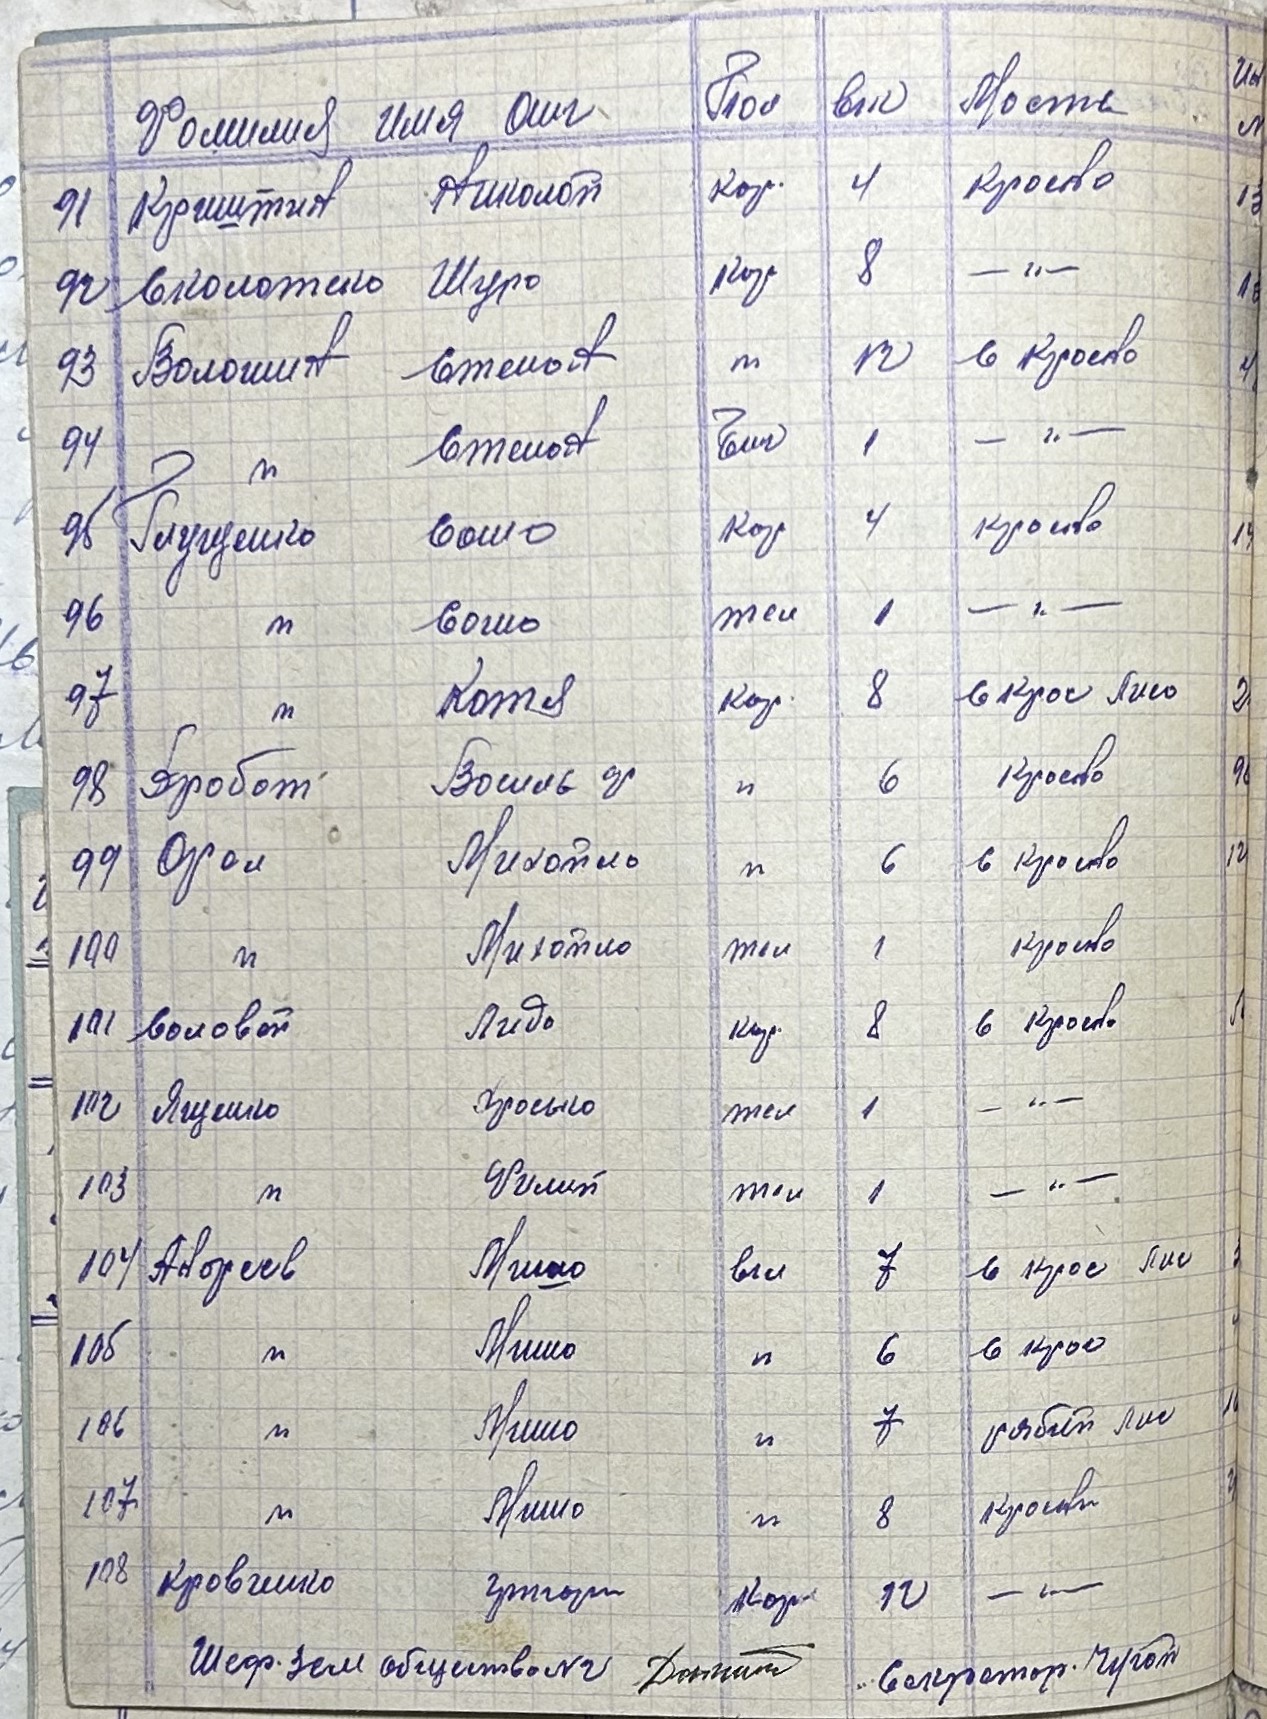 Фомилия имя Отч Пол вик Мость
91 Криштин Николой кор. 4 Кросно
92 Сколожено Шуро кор 8 — " —
93 Волошин Степон " 12 в Кросно
94 " Степон 1 — " —
95 Глущенко Сошо кор 4 Кросно
96 " Сошо тел 1 — " —
97 " Котя кор. 8 в Крос Лисо
98 Хробот Восиль " 6 Кросно
99 Орол Михойло " 6 в Кросно
100 " Михойло тел 1 Кросно
101 Соловей Лидо кор. 8 в Кросно
102 Ященко тел 1 — " —
103 " Филип тел 1 — " —
104 Андреев Мишо вол 7 в Крос Лис
105 " Мишо " 6 в крос
106 " Мишо " 7 рябой Лис
107 " Мишо " 8 Кросно
108 Кровченко Григори Кор 12 — " —
Шеф. Зем общество №2 Секротор. Чугой